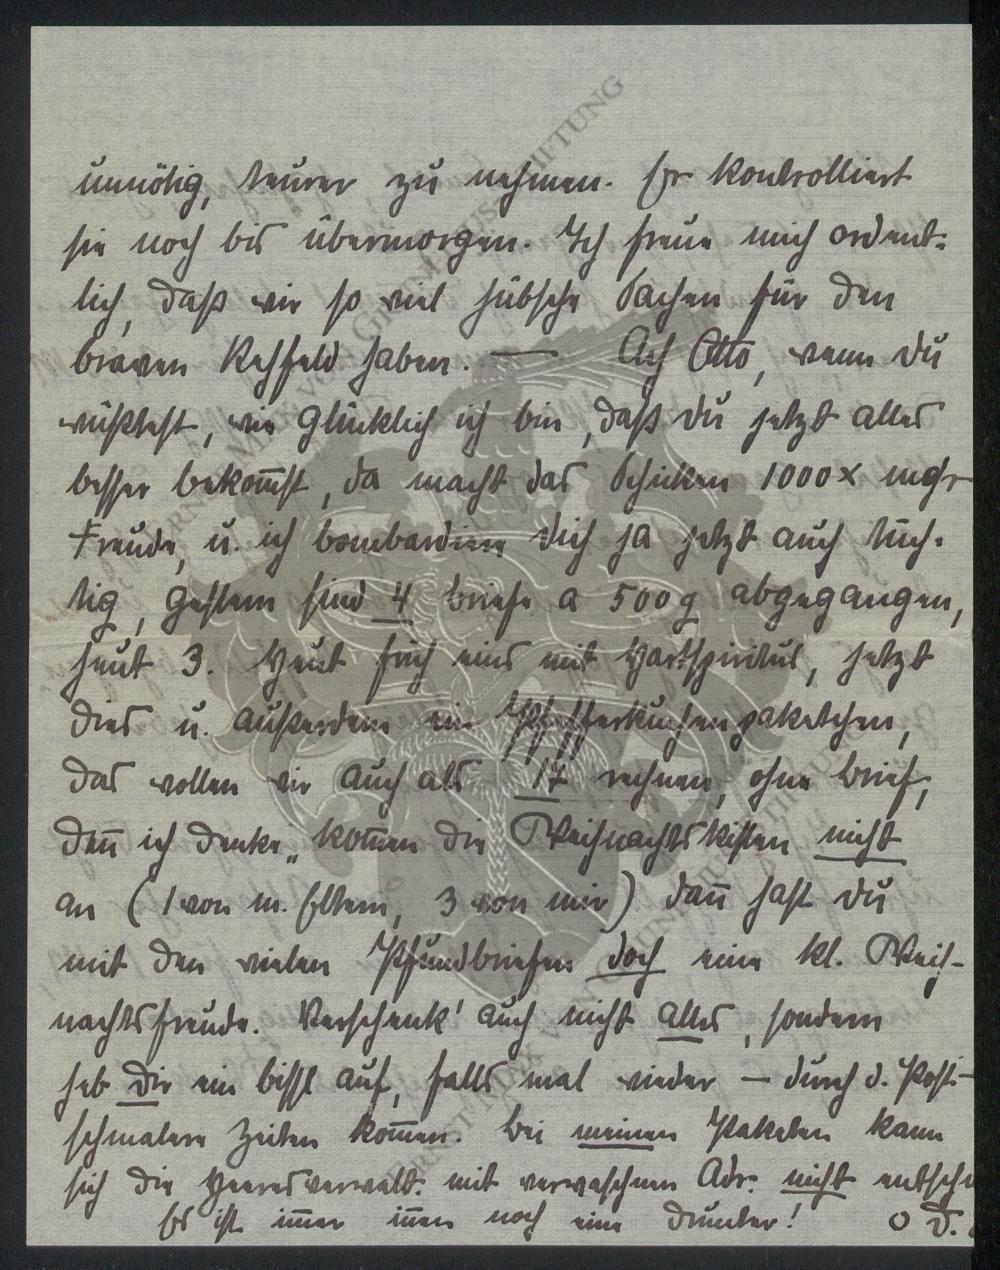 unnötig, teurer zu nehmen. Er kontrolliert
sie noch bis übermorgen. Ich freue mich ordent-
lich, daß wir so viel hübsche Sachen für den
braven Rehfeld haben. — Ach Otto, wenn Du
wüßtest, wie glücklich ich bin, daß Du jetzt alles
besser bekom̄st, da macht das Schicken 1000 x mehr
Freude, u. ich bombardiere Dich ja jetzt auch tüch-
tig, gestern sind 4 Briefe a 500 g abgegangen,
heut 3. Heut früh eins mit Hartspiritus, jetzt
dies u. außerdem ein Pfefferkuchenpaketchen,
das wollen wir auch als 17 rechnen, ohne Brief,
den̄ ich denke, kom̄en die Weihnachtskisten nicht
an (1 von m. Eltern, 3 von mir) dan̄ hast Du
mit den vielen Pfundbriefen doch eine kl. Weih-
nachtsfreude. Verschenk' auch nicht alles, sondern
heb Dir ein bissl auf, falls mal wieder — durch d. Post —
schmalere Zeiten kom̄en. Bei meinen Paketen kann
sich die Heeresverwalt. mit verwaschnen Adr. nicht entsch
Es ist im̄er in̄en noch eine drunter! O D.
ERNST MAX VON GRUNELIUS-STIFTUNG
ERNST MAX VON GRUNELIUS-STIFTUNG